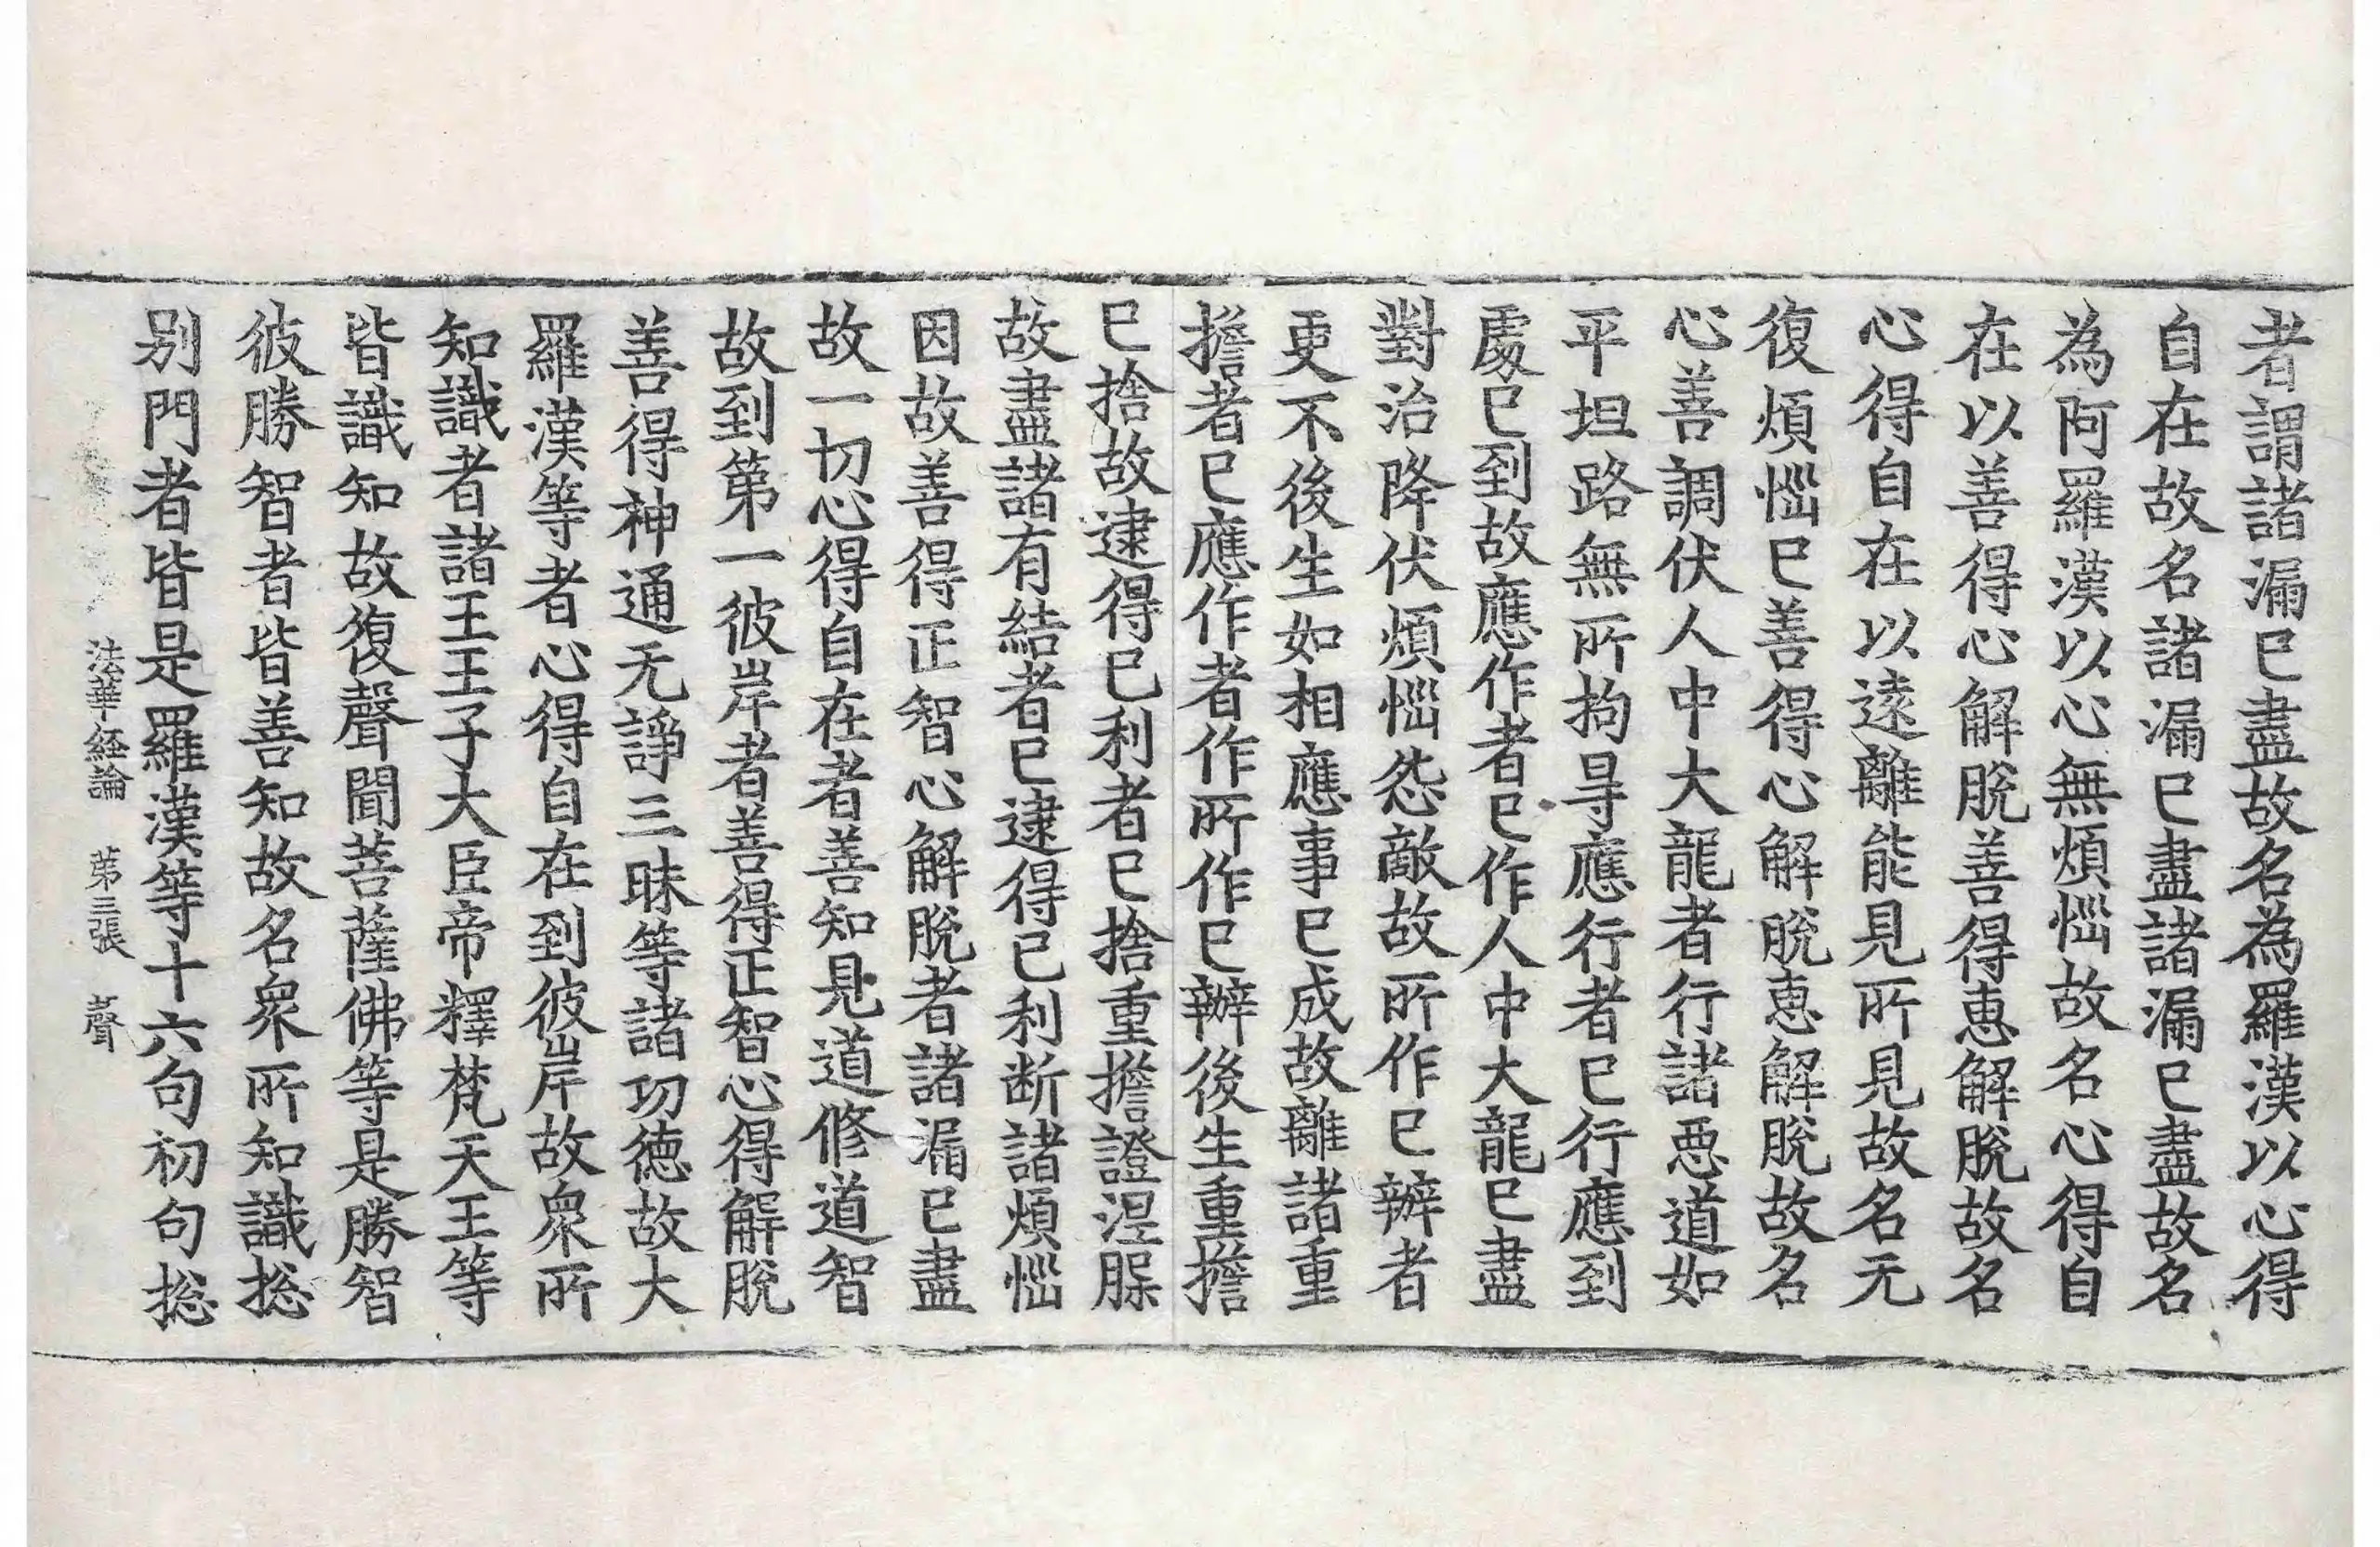 者謂諸漏已盡故名為羅漢以心得
自在故名諸漏已盡諸漏已盡故名
為阿羅漢以心無煩惱故名心得自
在以善得心解脫善得惠解脫故名
心得自在以遠離能見所見故名无
復煩惱已善得心解脫惠解脫故名
心善調伏人中大龍者行諸惡道如
平坦路無所拘㝵應行者已行應到
處已到故應作者已作人中大龍已盡
對治降伏煩惱怨敵故所作已辦者
更不後生如相應事已成故離諸重
擔者已應作者作所作已辦後生重擔
已捨故逮得已利者已捨重擔證涅槃
故盡諸有結者已逮得已利斷諸煩惱
因故善得正智心解脫者諸漏已盡
故一切心得自在者善知見道修道智
故到第一彼岸者善得正智心得解脫
善得神通无諍三昧等諸功德故大
羅漢等者心得自在到彼岸故眾所
知識者諸王王子大臣帝釋梵天王等
皆識知故復聲聞菩薩佛等是勝智
彼勝智者皆善知故名眾所知識捴
別門者皆是羅漢等十六句初句捴
法華経論 第三張 聲